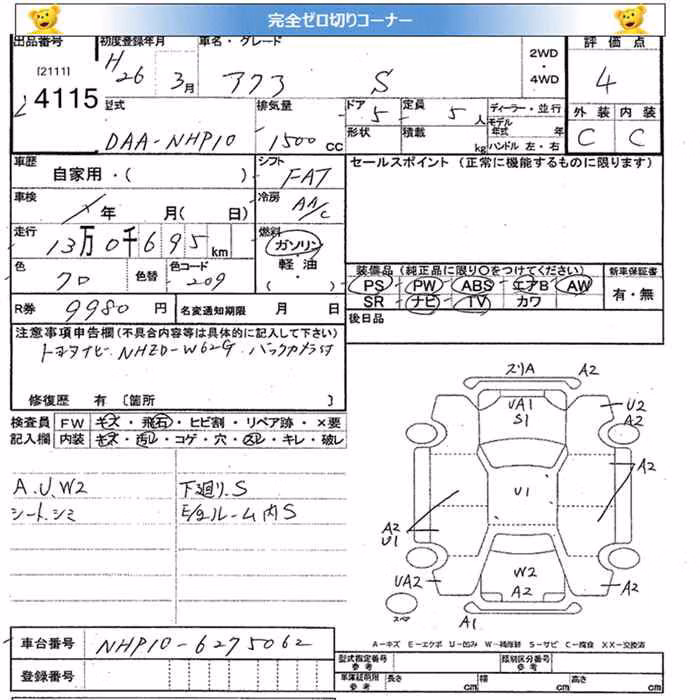 完全ゼロ切りコーナー
出品番号 初度登録年月 車名・グレード 評価点
[2111] H 26 3月 アクア S 2WD ・ 4WD 4
4115 型式 排気量 ドア 5 定員 5人 ディーラー・並行 外装 内装
DAA-NHP10 1500 CC 形状 積載 kg モデル年式 年 ハンドル 左・右 C C
車歴 シフト セールスポイント (正常に機能するものに限ります)
自家用・( ) FAT
車検 冷房
年 月( 日) AA/C
走行 燃料
13万0千695km ガソリン
・
軽油
( )
色 色替 色コード
クロ 209
装備品(純正品に限り○をつけてください) 新車保証書
PS PW ABS エアB AW 有・無
SR ナビ TV カワ
R券 9980円 名変通知期限 月 日
後日品
注意事項申告欄(不具合内容等は具体的に記入して下さい)
NHZD-W62G バックカメラ付
修復歴 有 [箇所 ]
検査員 FW キズ・飛石・ヒビ割・リペア跡・×要
記入欄 内装 キズ・汚レ・コゲ・穴・スレ・キレ・破レ
A.U.W2 下廻り.S
シートシミ ルーム内S
スリA A2
UA1
S1
U2
A2
A2
U1
A2
U1
UA2
W2
A2
A2
スペア
A1
A-キズ E-エクボ U-凹み W-補修跡 S-サビ C-腐食 XX-交換済
車台番号 NHP10-6275062
登録番号
型式指定番号 参考 類別区分番号 参考
車庫証明用 参考 長さ cm 幅 cm 高さ cm